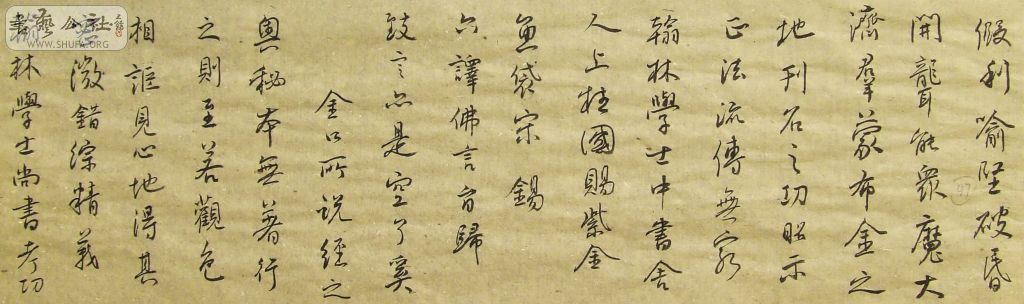 假利喻堅破昏
開聾能眾魔大
濟群蒙布金之
地刊石之功昭示
正法流傳無窮
翰林學士中書舍
人上柱國賜紫金
魚袋宋 錫
六譯佛言旨歸
致言亦是空了奚
金口所說經之
奧秘本無著行
之則至若觀色
相誰見心地得其
微錯綜精義
林學士尚書考功
書藝公社
WWW.SHUFA.ORG